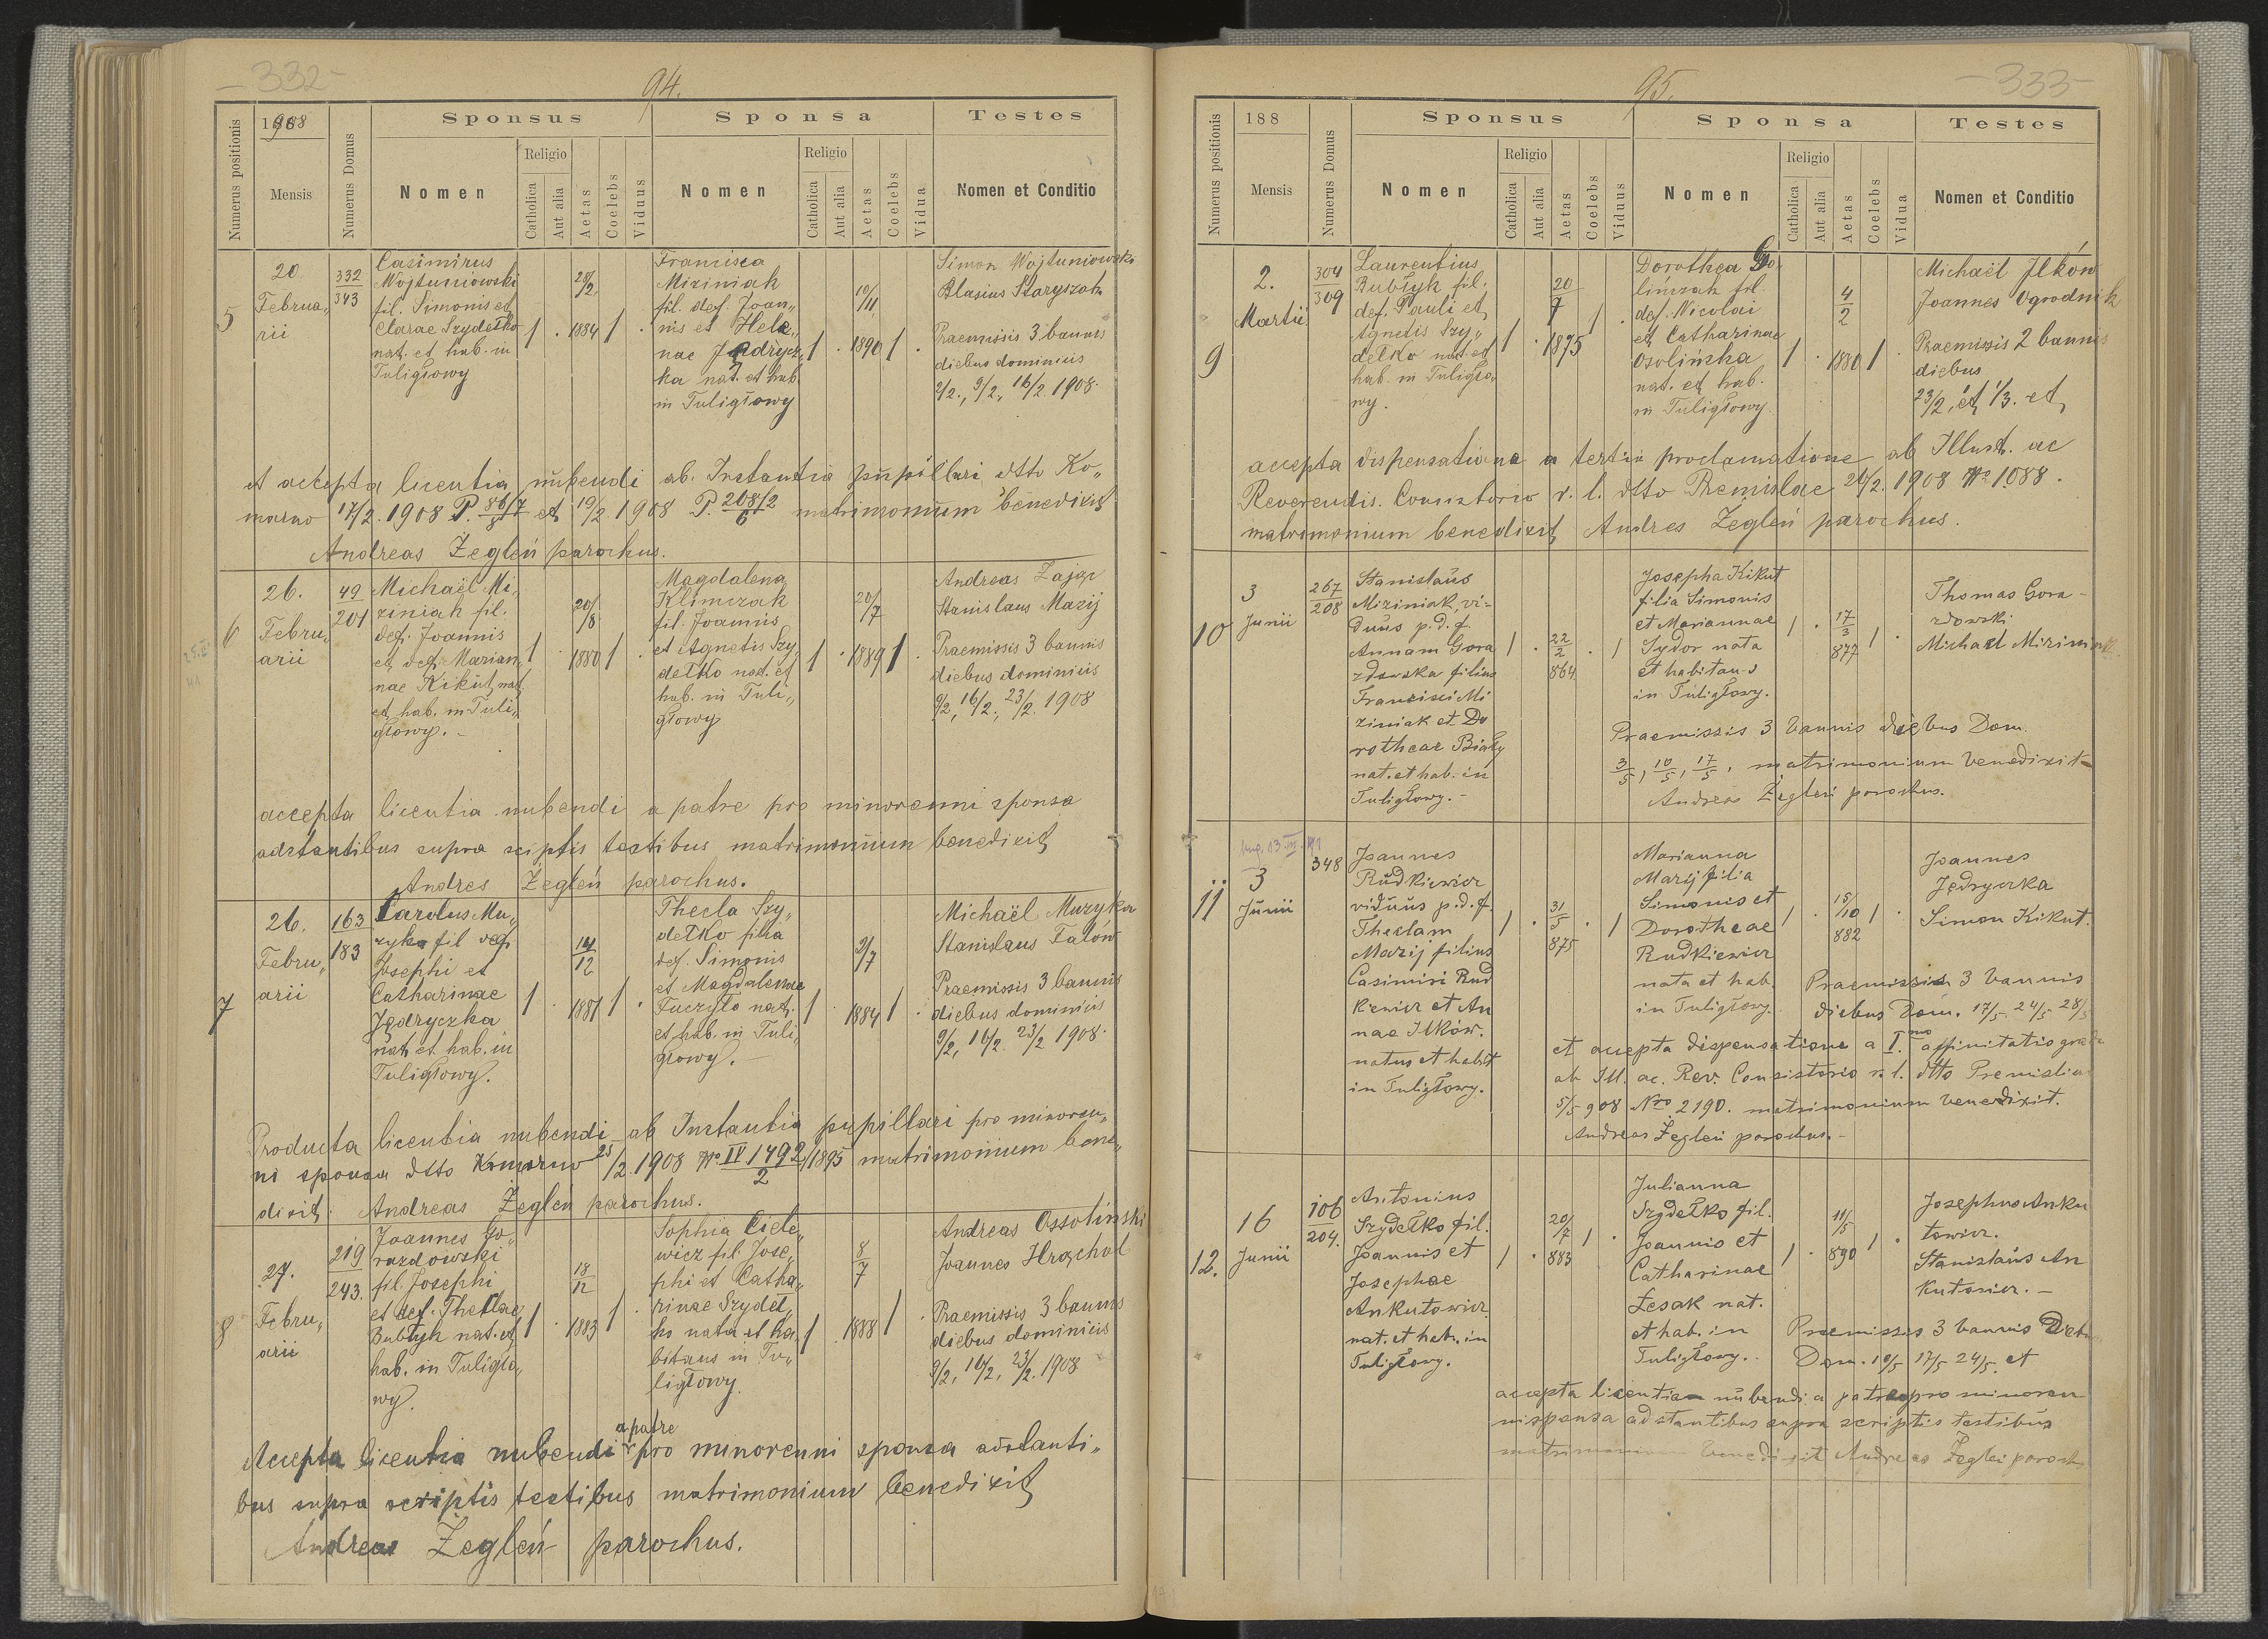 - 332 -
94.
Numerus positionis
1908
Mensis
Numerus Domus
Sponsus
Nomen
Religio
Catholica
Aut alia
Aetas
Coelebs
Viduus
Sponsa
Nomen
Religio
Catholica
Aut alia
Aetas
Coelebs
Vidua
Testes
Nomen et Conditio
5
20.
Februa„
rii
332
343
Casimirus
Wojtuniowski
fil. Simonis et
Clarae Szydełko
nat. et hab. in
Tuligłowy
1 .
28/2.
1884
1 .
Francisca
Miziniak
fil. def. Joan„
nis et Hele„
nae Jędrycz„
ka nat. et hab.
in Tuligłowy
1 .
10/11
1890
1 .
Simon Wojtuniowski
Blasius Staryszak
Praemissis 3 bannis
diebus dominicis
2/2., 9/2., 16/2. 1908.
et accepta licentia nubendi ab. Instantia pupillari dtto Ko„
marno 17/2. 1908 P. 86/7 et 19/2 1908 P. 208/2 6 matrimonium benedixit
Andreas Żegleń parochus.
6
26.
Febru„
arii
49
201
Michaël Mi„
ziniak fil.
def. Joannis
et def. Marian„
nae Kikut, nat.
et hab. in Tuli„
głowy. -
1 .
20/8
1880
1 .
Magdalena
Klimczak
fil. Joannis
et Agnetis Szy„
dełko nat. et
hab. in Tuli„
głowy
1 .
20/7
1889
1 .
Andreas Zając
Stanislaus Mazij
Praemissis 3 bannis
diebus dominicis
9/2, 16/2., 23/2. 1908
accepta licentia nubendi a patre pro minorenni sponsa
adstantibus supra sciptis testibus matrimonium benedixit
Andres Żegleń parochus.
7
26.
Febru„
arii
163
183
Carolus Mu„
zyka fil def
Josephi et
Catharinae
Jędryczka
nat. et hab. in
Tuligłowy.
1 .
14/12
1881
1 .
Thecla Szy„
dełko filia
def. Simonis
et Magdalenae
Fuczyło nat.
et hab. in Tuli„
głowy. -
1 .
9/7
1884
1 .
Michaël Muzyka
Stanislaus Falów
Praemissis 3 bannis
diebus dominicis
9/2, 16/2. 23/2 1908.
Producta licentia nubendi ab Instantia pupillari pro minoren„
ni sponsa dtto Komarno 25/2. 1908 No IV 1492/1895 2 matrimonium bene„
dixit. Andreas Żegleń parochus.
8
27.
Febru„
arii
219
243.
Joannes Go„
razdowski
fil. Josephi
et def. Theclae
Bubłyk nat. et
hab. in Tuligło„
wy.
1 .
18/12
1883
1 .
Sophia Ciele„
wicz fil. Jose„
phi et Catha„
rinae Szydeł„
ko nata et ha„
bitans in Tu„
ligłowy.
1 .
8/7
1888
1 .
Andreas Ossoliński
Joannes Hrochol
Praemissis 3 bannis
diebus dominicis
9/2, 16/2, 23/2. 1908
a patre
Accepta licentia nubendi pro minorenni sponsa adstanti„
bus supra scriptis testibus matrimonium benedixit
Andreas Żegleń parochus.
95.
- 333 -
Numerus positionis
188
Mensis
Numerus Domus
Sponsus
Nomen
Religio
Catholica
Aut alia
Aetas
Coelebs
Viduus
Sponsa
Nomen
Religio
Catholica
Aut alia
Aetas
Coelebs
Vidua
Testes
Nomen et Conditio
9
2.
Martii
304
309
Laurentius
Bubłyk fil.
def. Pauli et
Agnetis Szy„
dełko nat. et
hab. in Tuligło„
wy.
1 .
20/7
1875
1 .
Dorothea Go„
linczak fil.
def. Nicolai
et Catharinae
Osolińska
nat. et hab.
in Tuligłowy.
1 .
4/2
1880
1 .
Michaël Ilków
Joannes Ogrodnik
Praemissis 2 bannis
diebus
23/2, et 1/3. et
accepta dispensatione a tertia proclamatione ab Illust. ac
Reverendis. Consistorio r. l. dtto Premislae 24/2. 1908 No 1088.
matrimonium benedixit Andres Żegleń parochus.
10
3
Junii
267
208
Stanislaus
Miziniak, vi-
duus p. d. f.
Annam Gora
zdowska filius
Francisci Mi
ziniak et Do
rotheae Biały
nat. et hab. in
Tuligłowy. -
1 .
22/2
864
. 1
Josepha Kikut
filia Simonis
et Mariannae
Sydor nata
et habitans
in Tuligłowy.
1 .
17/3
877
1 .
Thomas Gora-
zdowski
Michael Miziniak
Praemissis 3 bannis diebus Dom.
3/5, 10/5, 17/5, matrimonium benedixit
Andreas Żegleń parochus.
11
3
Junii
348
Joannes
Rudkiewicz
viduus p. d. f.
Theclam
Mazij filius
Casimiri Rud
kiewicz et An
nae Ilków.
natus et habit
in Tuligłowy.
1 .
31/5
875
. 1
Marianna
Mazij filia
Simonis et
Dorotheae
Rudkiewicz
nata et hab.
in Tuligłowy.
1 .
15/10
882
1 .
Joannes
Jędryczka
Simon Kikut.
Praemissis 3 bannis
diebus Dom. 17/5. 24/5 28/5
et accepta dispensatione a I.mo affinitatis gradu
ab Ill. ac. Rev. Consistorio r. l. dtto Premislia
5/5 908 Nro 2190. matrimonium benedixit.
Andreas Żegleń parochus. -
12.
16
Junii
106
204.
Antonius
Szydełko fil.
Joannis et
Josephae
Ankutowicz
nat. et hab. in
Tuligłowy.
1 .
20/7
883
1 .
Julianna
Szydełko fil.
Joannis et
Catharinae
Lesak nat.
et hab. in
Tuligłowy.
1 .
11/5
890
1 .
Josephus Anku
towicz.
Stanislaus An
kutowicz. -
Praemissis 3 bannis Diebus
Dom. 10/5 17/5 24/5. et
accepta licentia nubendi a patre pro minoren
ni sponsa adstantibus supra scriptis testibus
matrimonium benedixit Andreas Żegleń paroch